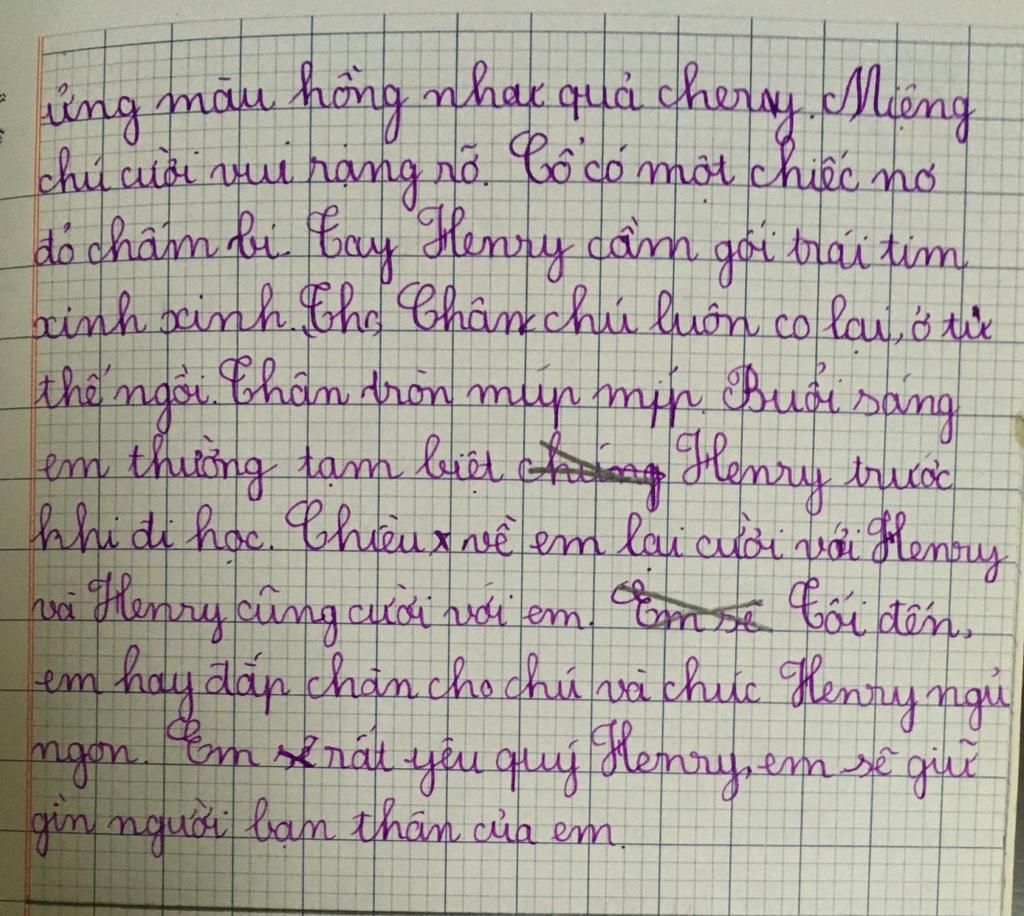 ửng màu hồng nhạt quả cherry. Miệng
chú cười vui rạng rỡ. Cổ có một chiếc nơ
đỏ chấm bi. Tay Henry cầm gối trái tim
xinh xinh. Chân chú luôn co lại, ở tư
thế ngồi. Thân tròn múp míp. Buổi sáng
em thường tạm biệt Henry trước
khi đi học. Chiều về em lại cười với Henry
và Henry cũng cười với em. Tối đến,
em hay đắp chăn cho chú và chúc Henry ngủ
ngon. Em rất yêu quý Henry, em sẽ giữ
gìn người bạn thân của em.